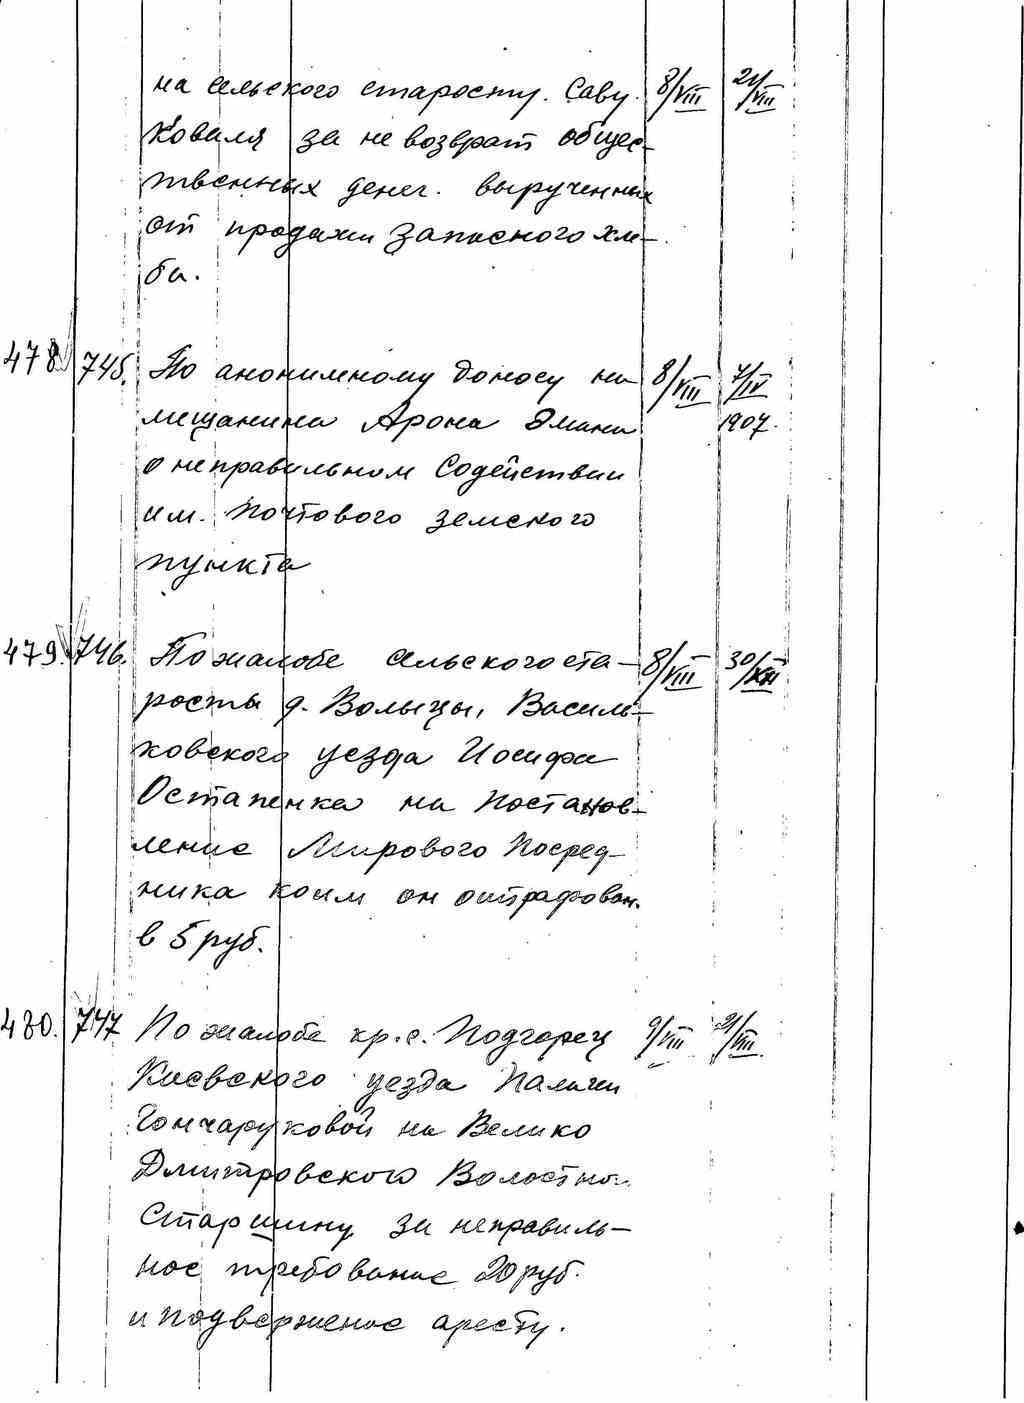 на сельского старосту. Саву 8/VIII 21/VIII
Коваля за не возврат общес-
твенных денег. вырученных
от продажи запасного хле-
ба.
478 745. По анонимному доносу на 8/VIII 7/IV
мещанина Арона 1907.
о неправильном Содействии
им. почтового земского
пункта
479. 746. По жалобе сельского ста- 8/VIII 30/XII
росты д. Волыцы, Василь-
ковского уезда Иосифа
Остапенка на Постанов-
ление Мирового Посред-
ника коим он оштрафован.
в 5 руб.
480. 747 По жалобе кр. с. Подгорец 9/VIII 21/VIII
Киевского уезда Палажки
Гончаруковой на Велико
Дмитровского Волостно.
Старшину за неправиль-
ное требование 20 руб.
и подвержение аресту.